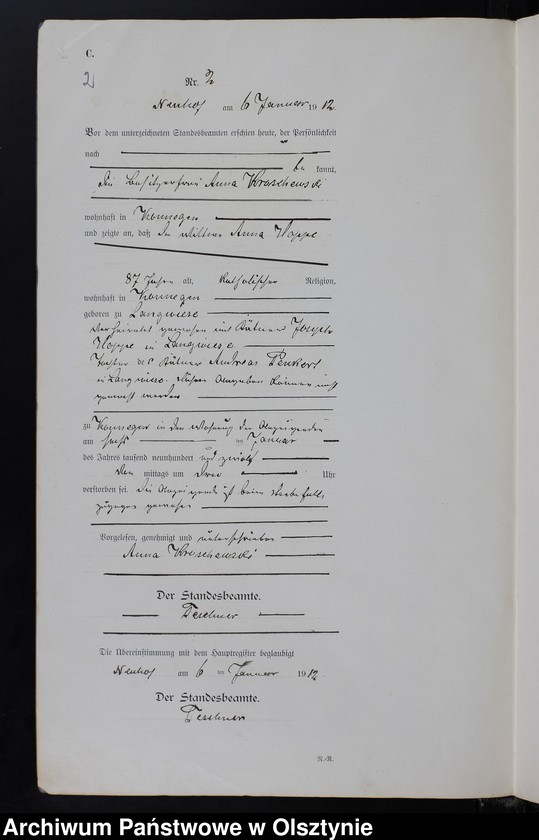 C.
2
Nr. 2
Neuhof am 6 Januar 1912.
Vor dem unterzeichneten Standesbeamten erschien heute, der Persönlichkeit
nach
be kannt,
die Besitzerfrau Anna Kroschewski
wohnhaft in Konnegen
und zeigte an, daß die Witwe Anna Hoppe
87 Jahre alt, katholischer Religion,
wohnhaft in Konnegen
geboren zu Langwiese
verheiratet gewesen mit Kätner Joseph
Hoppe in Langwiese
Tochter des Kätner Andreas
in Langwiese. Nähere Angaben können nicht
gemacht werden
zu Konnegen in der Wohnung der Anzeigenden
am im Januar
des Jahres tausend neunhundert und zwölf
Vor mittags um drei Uhr
verstorben sei. Die Anzeigende ist beim Sterbefalle
zugegen gewesen
Vorgelesen, genehmigt und unterschrieben
Anna Kroschewski
Der Standesbeamte.
Teschner
Die Übereinstimmung mit dem Hauptregister beglaubigt
Neuhof am 6 ten Januar 1912
Der Standesbeamte.
Teschner
R.-R.
Archiwum Państwowe w Olsztynie